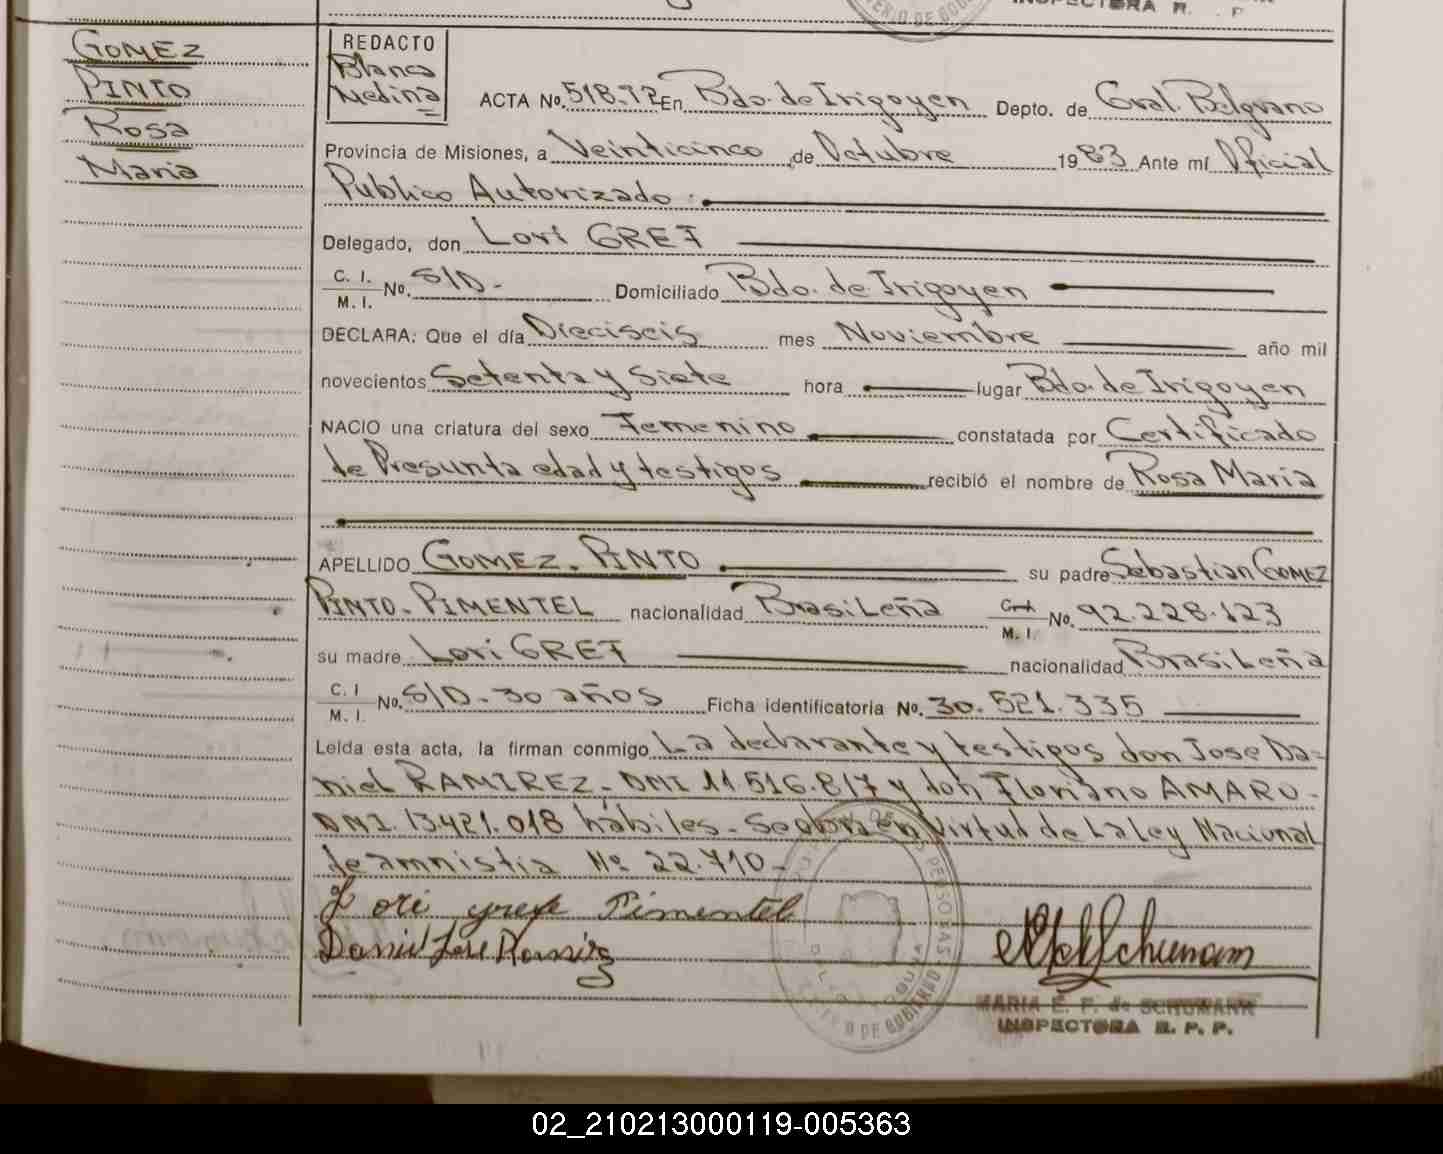 GOMEZ
PINTO
Rosa
Maria
REDACTO
Blanca
Medina
ACTA No. 518.T2 En Bdo. de Irigoyen Depto. de Gral. Belgrano
Provincia de Misiones, a Veinticinco de Octubre 1983 Ante mí Oficial
Publico Autorizado.
Delegado, don Lori GREF
C. I.
M. I. No. S/D- Domiciliado Bdo. de Irigoyen
DECLARA: Que el día Dieciseis mes Noviembre año mil
novecientos Setenta y Siete hora lugar Bdo. de Irigoyen
NACIO una criatura del sexo Femenino constatada por Certificado
de Presunta edad y testigos recibió el nombre de Rosa Maria
APELLIDO GOMEZ. PINTO su padre Sebastian GOMEZ
PINTO-PIMENTEL nacionalidad Brasileña
M. I. No. 92.228.123
su madre Lori GREF nacionalidad Brasileña
C. I
M. I. No. S/D-30 años Ficha identificatoria No. 30.521.335
Leída esta acta, la firman conmigo La declarante y testigos don Jose Da-
niel RAMIREZ- DNI 11.516.817 y don Floriano AMARO-
DNI. 13421.018 hábiles- Se labra en Virtud de La Ley Nacional
de amnistia Nº 22.710-
Lori Pimentel
Daniel Jose Ramirez
MARIA E. F. de SCHUMANN
INSPECTORA R. P. P.
02_210213000119-005363